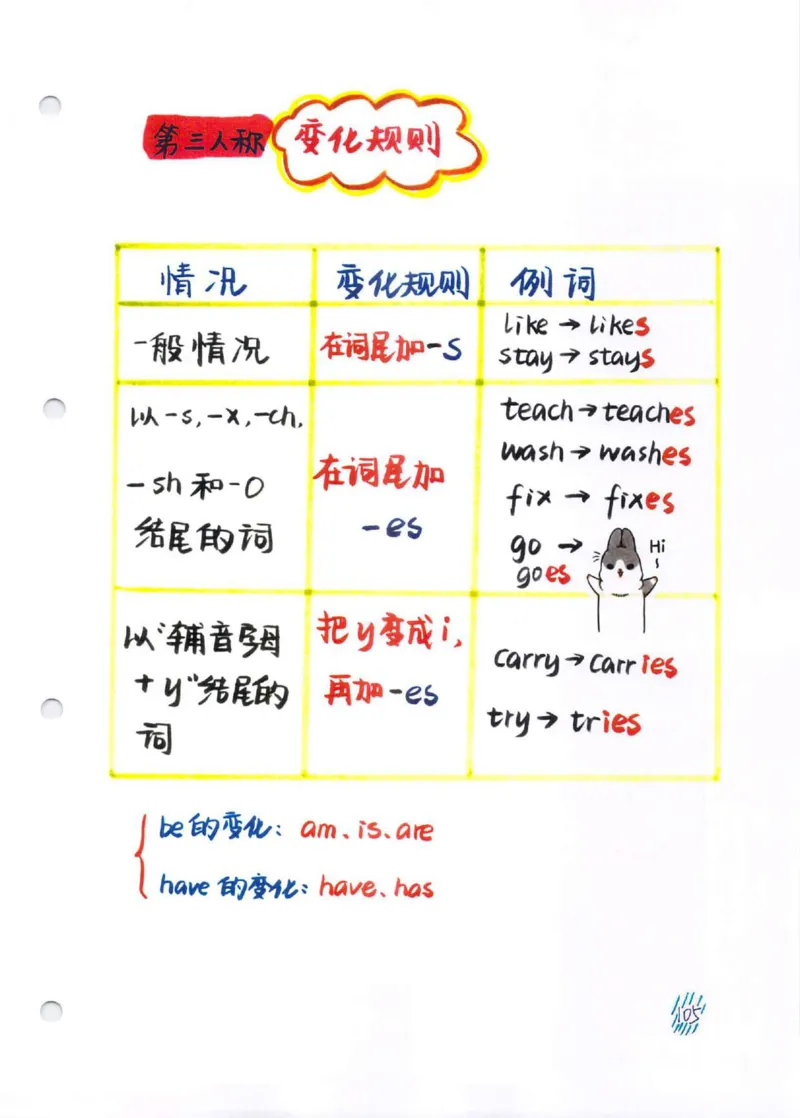 第三人称 变化规则
情况 变化规则 例词
一般情况 在词尾加-s like → likes
stay → stays
以-s,-x,-ch,
-sh和-o
结尾的词
在词尾加
-es
teach → teaches
wash → washes
fix → fixes
go →
goes
Hi
以“辅音字母
+y”结尾的
词
把y变成i,
再加-es
carry → carries
try → tries
be的变化: am、is、are
have的变化: have、has
105